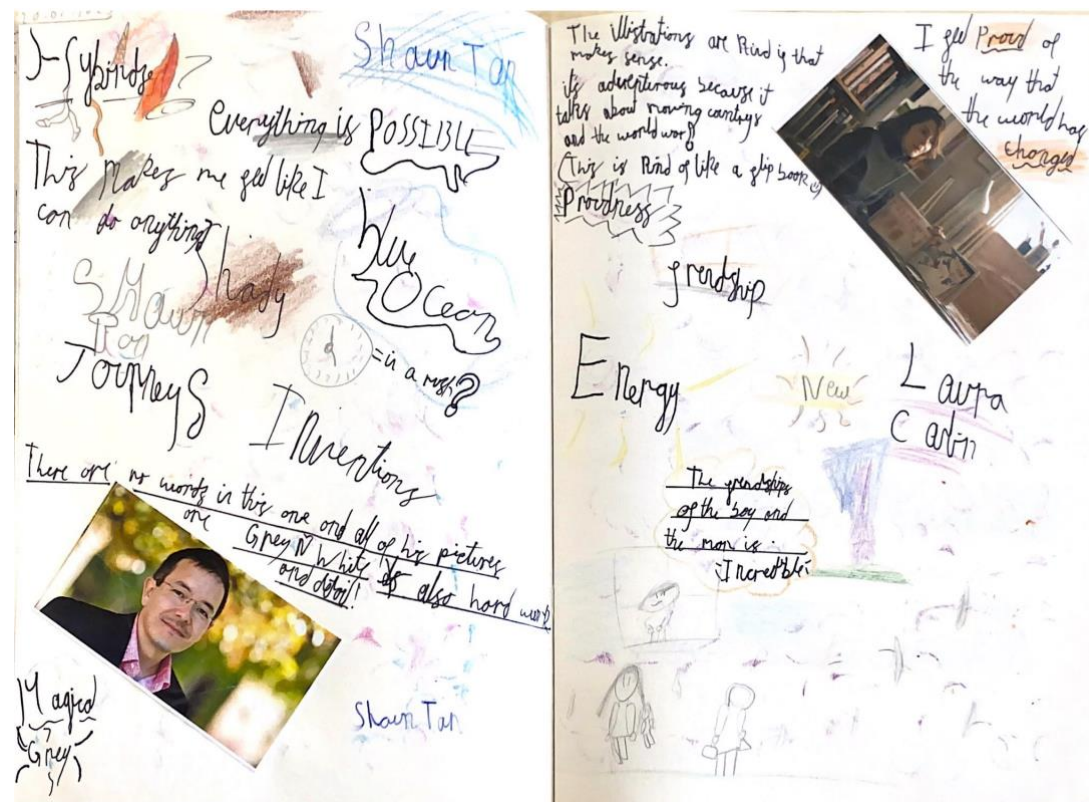 Shaun Tan
everything is POSSIBLE
This makes me feel like I
can do anything
Shady
Blue
Ocean
SHaun
Tan
= in a rush?
JOurneyS
Inventions
There are no words in this one and all of his pictures
are Grey N White its also hard work
and detail!
Shaun Tan
Magical
Grey
The illistrations are kind if that
makes sense.
it's adventurous because it
talks about moving countrys
and the world war
(This is kind of like a flip book
Proudness
I feel Proud of
the way that
the world has
changed
frendship
Energy
New
Laura
Carlin
The frendships
of the boy and
the man is
Incredible